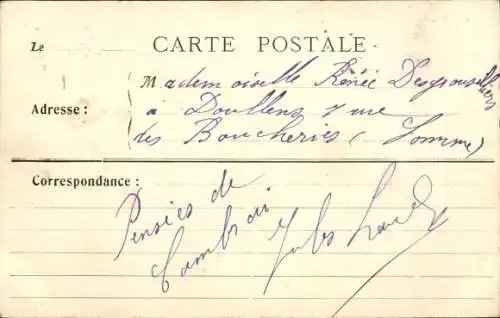 CARTE POSTALE
Le
Mademoiselle Renée Desgrouselliers
Adresse :
à Doullens 7 rue
des Boucheries (Somme)
Correspondance :
Pensées de
Cambrai
Jules